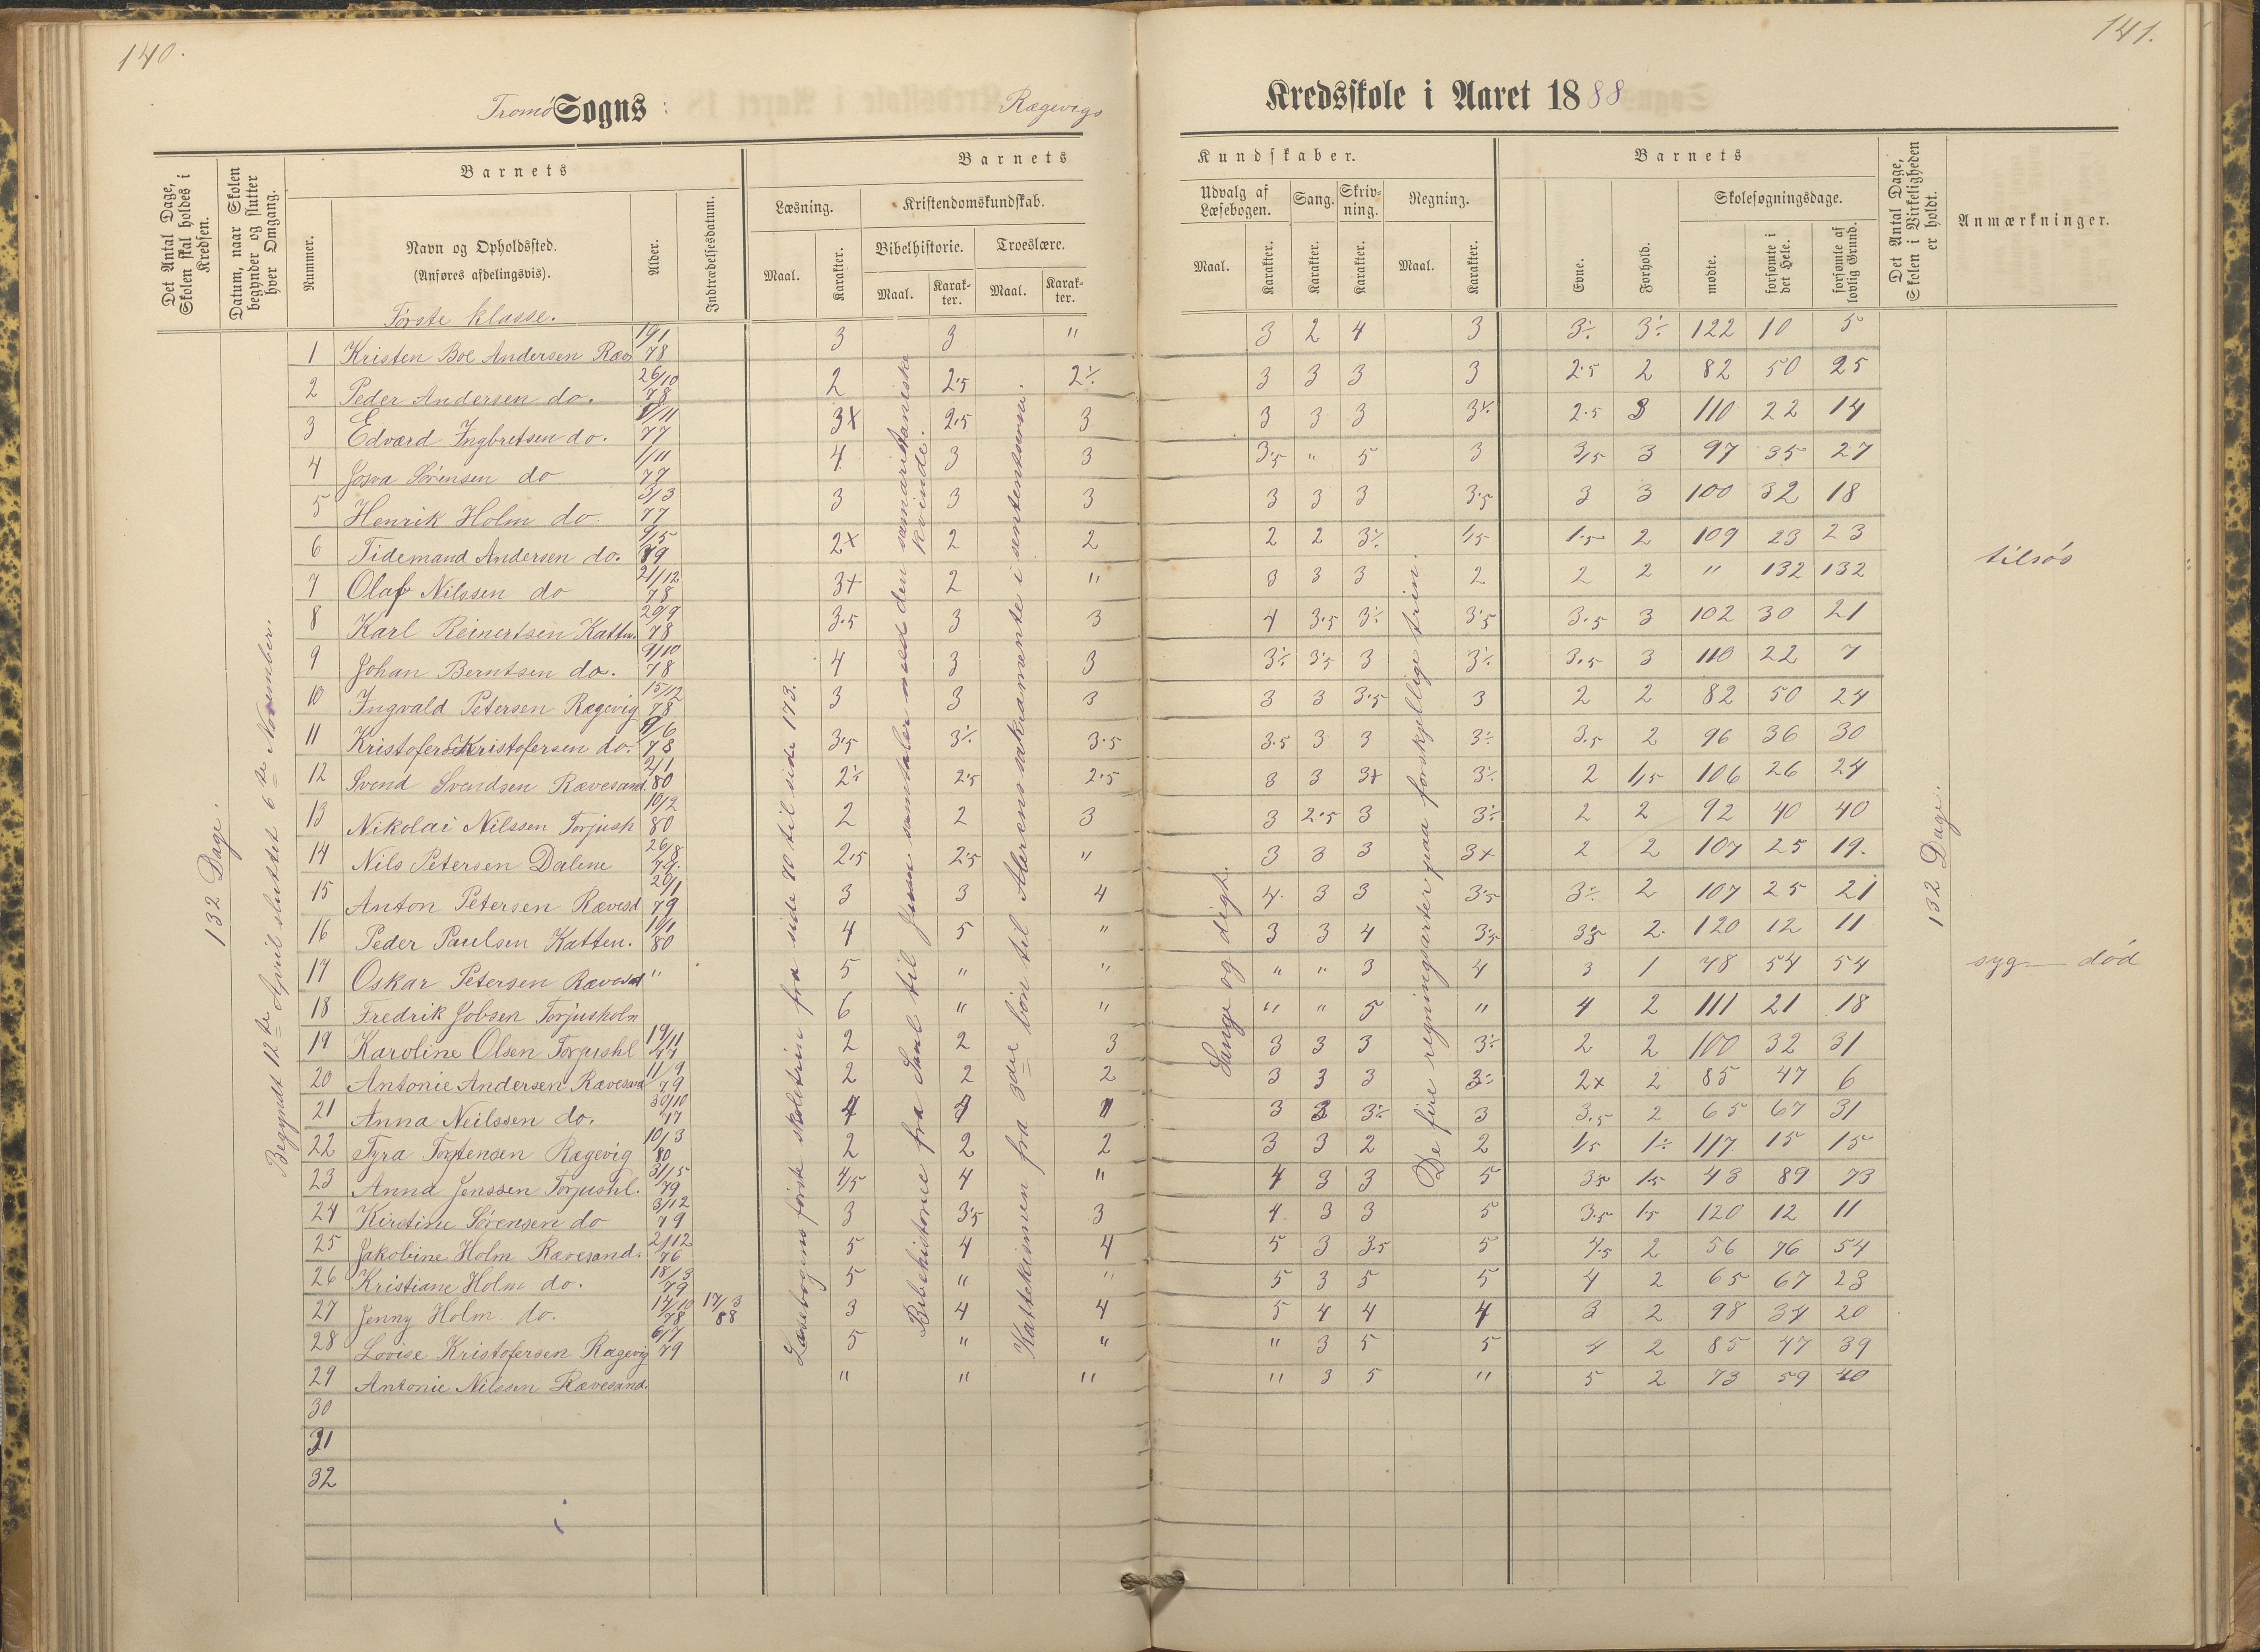 140.
141.
Tromø Sogns
Rægevigs
Kredsskole i Aaret 1888
Det Antal Dage, Skolen skal holdes i Kredsen.
Datum, naar Skolen begynder og slutter hver Omgang.
Barnets
Nummer.
Navn og Opholdssted.
(Anføres afdelingsvis).
Alder.
Indtrædelsesdatum.
Barnets
Kundskaber.
Læsning.
Maal.
Karakter.
Kristendomskundskab.
Bibelhistorie.
Maal.
Karakter.
Troeslære.
Maal.
Karakter.
Udvalg af Læsebogen.
Maal.
Karakter.
Sang.
Karakter.
Skrivning.
Karakter.
Regning.
Maal.
Karakter.
Barnets
Evne.
Forhold.
Skolesøgningsdage.
mødte.
forsømte i det Hele.
forsømte af lovlig Grund.
Det Antal Dage, Skolen i Virkeligheden er holdt.
Anmærkninger.
132 Dage.
Begyndt 12te April sluttet 6te November.
Læsebogens første skoletrin fra side 90 til side 173.
Bibelhistorie fra Saul til Jesu samtaler med den samaritaniske kvinde.
Kattekismen fra 3die bøn til Alterens sakramente i sentenserne.
Sange og digt.
De fire regningsarter paa forskjellige trin.
132 Dage.
Første klasse.
1 Kristen Boe Andersen Ræv 19/1 78 3 3 " 3 2 4 3 3÷ 3÷ 122 10 5
2 Peder Andersen do. 26/10 78 2 2.5 2÷ 3 3 3 3 2.5 2 82 50 25
3 Edvard Ingbretsen do. 8/11 77 3+ 2.5 3 3 3 3 3÷ 2.5 3 110 22 14
4 Josva Sørensen do 1/11 79 4 3 3 3.5 " 5 3 3/5 3 97 35 27
5 Henrik Holm do. 3/3 77 3 3 3 3 3 3 3.5 3 3 100 32 18
6 Tidemand Andersen do. 9/5 79 2+ 2 2 2 2 3÷ 1/5 1.5 2 109 23 23
7 Olaf Nilssen do 21/12 78 3+ 2 " 3 3 3 2 2 2 " 132 132 tilsøs
8 Karl Reinertsen Katten. 29/9 78 3.5 3 3 4 3.5 3÷ 3.5 3.5 3 102 30 21
9 Johan Berntsen do. 9/10 78 4 3 3 3÷ 3.5 3 3÷ 3.5 3 110 22 7
10 Ingvald Petersen Rægevig 15/12 78 3 3 3 3 3 3.5 3 2 2 82 50 24
11 Kristofer Kristofersen do. 9/6 78 3.5 3÷ 3.5 3.5 3 3 3÷ 3.5 2 96 36 30
12 Svend Svendsen Rævesand. 2/1 80 2÷ 2.5 2.5 3 3 3+ 3÷ 2 1/5 106 26 24
13 Nikolai Nilssen Torjush 10/2 80 2 2 3 3 2.5 3 3÷ 2 2 92 40 40
14 Nils Petersen Dalene 26/8 77. 2.5 2.5 " 3 3 3 3+ 2 2 107 25 19.
15 Anton Petersen Rævesd 20/1 79 3 3 4 4. 3 3 3.5 3÷ 2 107 25 21
16 Peder Paulsen Katten. 10/1 80 4 5 " 3 3 4 3.5 3.5 2. 120 12 11
17 Oskar Petersen Rævesd " 5 " " " " 3 4 3 1 78 54 54 syg — død
18 Fredrik Jobsen Torjusholm 6 " " " " 5 " 4 2 111 21 18
19 Karoline Olsen Torjushl 19/11 77 2 2 3 3 3 3 3÷ 2 2 100 32 31
20 Antonie Andersen Rævesand 11/9 79 2 2 2 3 3 3 3÷ 2+ 2 85 47 6
21 Anna Neilssen do. 30/10 77 4 4 " 3 3 3÷ 3 3.5 2 65 67 31
22 Tyra Torstensen Rægevig 10/3 80 2 2 2 3 3 2 2 1/5 1÷ 117 15 15
23 Anna Jenssen Torjushl. 79 4/5 4 " 4 3 3 5 3.5 1.5 43 89 73
24 Kirstine Sørensen do 3/12 79 3 3.5 3 4. 3 3 5 3.5 1.5 120 12 11
25 Jakobine Holm Rævesand. 2/12 76 5 4 4 5 3 3.5 5 4.5 2 56 76 54
26 Kristiane Holm do. 18/3 79 5 " " 5 3 5 5 4 2 65 67 23
27 Jenny Holm. do. 14/10 78 17/3 88 3 4 4 5 4 4 4 3 2 98 34 20
28 Lovise Kristofersen Rægevig 6/7 79 5 " " " 3 5 5 4 2 85 47 39
29 Antonie Nilssen Rævesand. " " " " 3 5 " 5 2 73 59 40
30
31
32